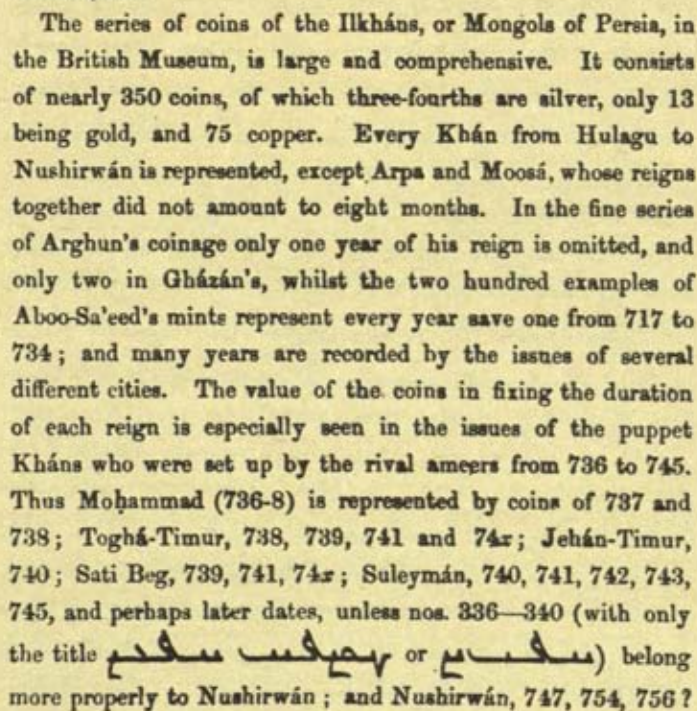 The series of coins of the Ilkháns, or Mongols of Persia, in
the British Museum, is large and comprehensive. It consists
of nearly 350 coins, of which three-fourths are silver, only 13
being gold, and 75 copper. Every Khán from Hulagu to
Nushirwán is represented, except Arpa and Moosá, whose reigns
together did not amount to eight months. In the fine series
of Arghun's coinage only one year of his reign is omitted, and
only two in Gházán's, whilst the two hundred examples of
Aboo-Sa'eed's mints represent every year save one from 717 to
734; and many years are recorded by the issues of several
different cities. The value of the coins in fixing the duration
of each reign is especially seen in the issues of the puppet
Kháns who were set up by the rival ameers from 736 to 745.
Thus Moḥammad (736-8) is represented by coins of 737 and
738; Toghá-Timur, 738, 739, 741 and 74x; Jehán-Timur,
740; Sati Beg, 739, 741, 74x; Suleymán, 740, 741, 742, 743,
745, and perhaps later dates, unless nos. 336—340 (with only
the title or ) belong
more properly to Nushirwán; and Nushirwán, 747, 754, 756?